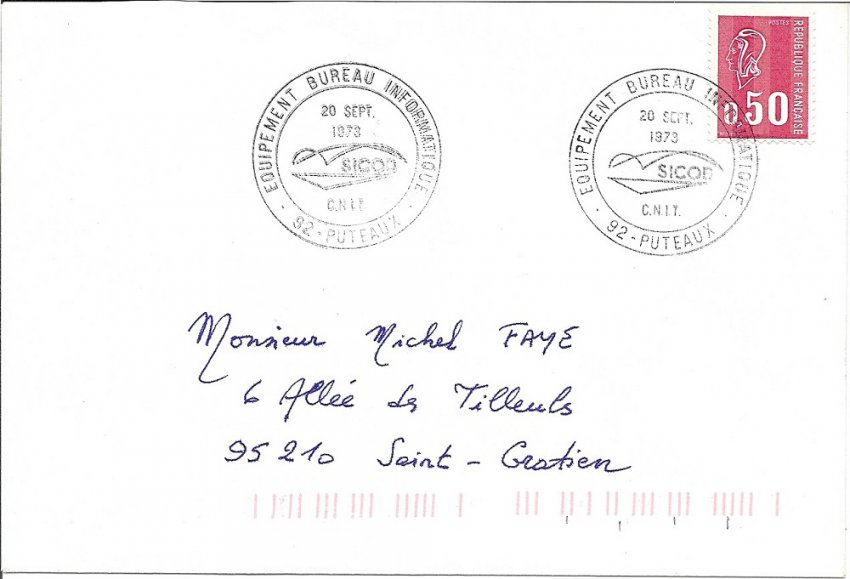 EQUIPEMENT BUREAU INFORMATIQUE
20 SEPT.
1973
SICOB
C.N.I.T.
· 92 - PUTEAUX ·
EQUIPEMENT BUREAU INFORMATIQUE
20 SEPT.
1973
SICOB
C.N.I.T.
· 92 - PUTEAUX ·
POSTES
REPUBLIQUE FRANÇAISE
0,50
Monsieur Michel FAYE
6 Allée des Tilleuls
95210 Saint-Gratien